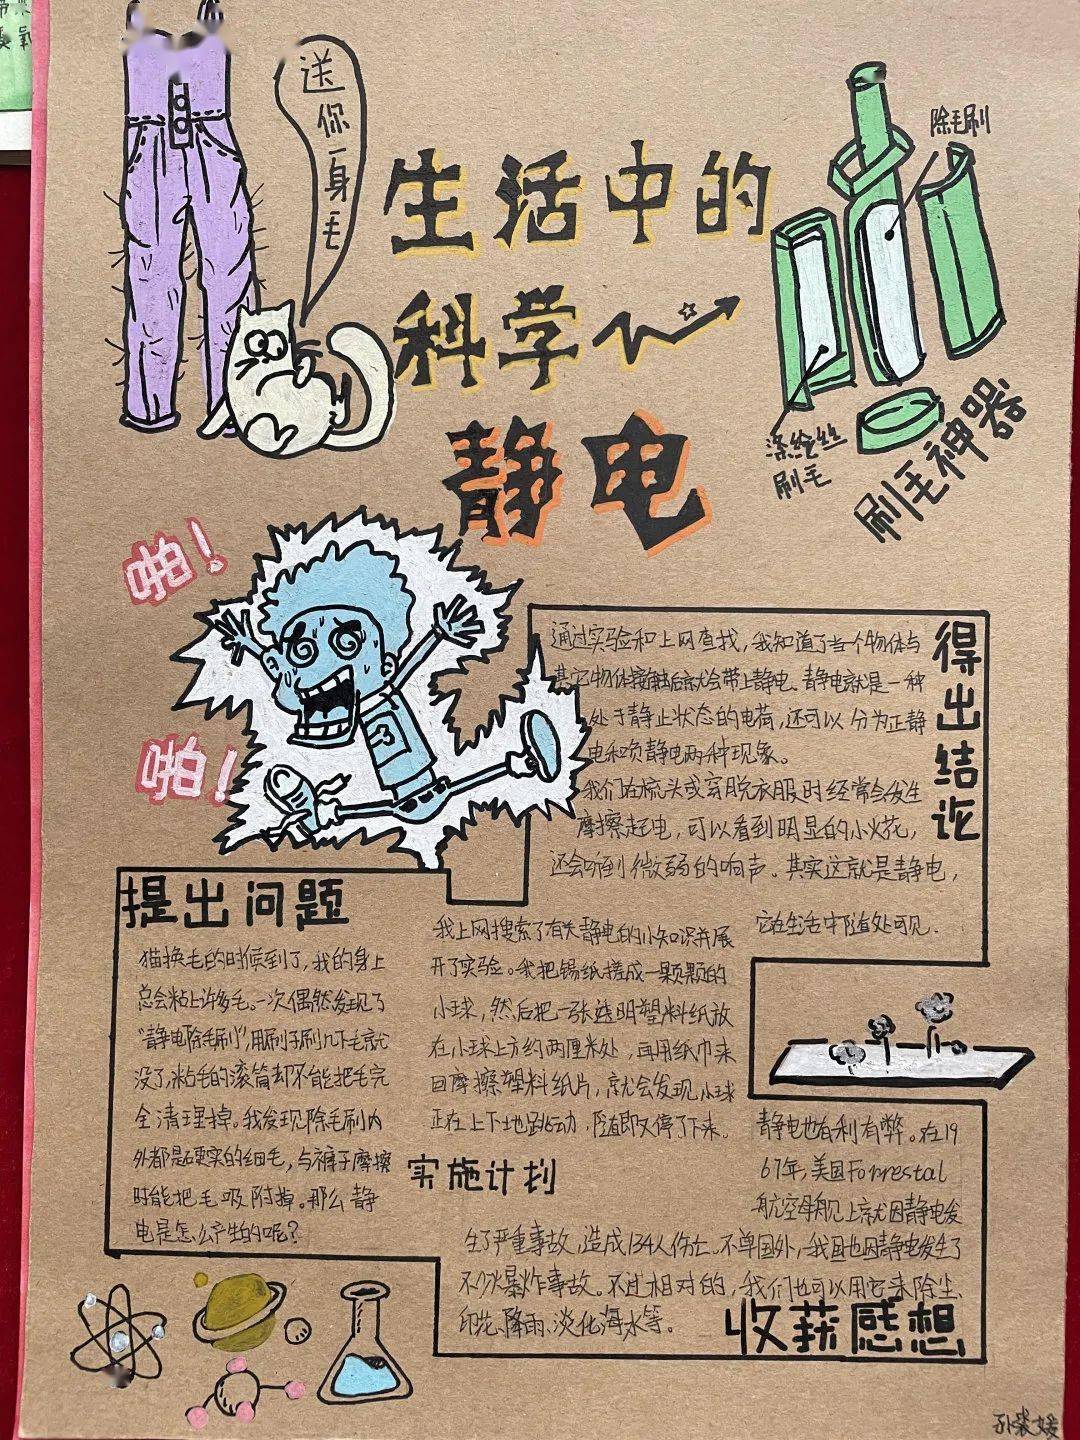 送你一身毛
生活中的
科学
静电
除毛刷
涤纶丝
刷毛
刷毛神器
啪！
啪！
得出结论
通过实验和上网查找，我知道了当个物体与
其它物体接触后就会带上静电。静电就是一种
处于静止状态的电荷，还可以分为正静
电和负静电两种现象。
我们在梳头或穿脱衣服时经常会发生
摩擦起电，可以看到明显的小火花，
还会听到微弱的响声。其实这就是静电，
它在生活中随处可见.
提出问题
猫换毛的时候到了，我的身上
总会粘上许多毛。一次偶然发现了
“静电除毛刷”，用刷子刷几下毛就
没了，粘毛的滚筒却不能把毛完
全清理掉。我发现除毛刷内
外都是硬实的细毛，与裤子摩擦
时能把毛吸附掉。那么静
电是怎么产生的呢？
我上网搜索了有关静电的小知识并展
开了实验。我把锡纸搓成一颗颗的
小球，然后把一张透明塑料纸放
在小球上方约两厘米处，再用纸巾来
回摩擦塑料纸片，就会发现小球
正在上下地跳动，随即又停了下来。
实施计划
静电也有利有弊。在19
67年，美国Forrestal
航空母舰上就因静电发
生了严重事故，造成134人伤亡。不单国外，我国也因静电发生了
不少爆炸事故。不过相对的，我们也可以用它来除尘、
印花、降雨、淡化海水等。
收获感想